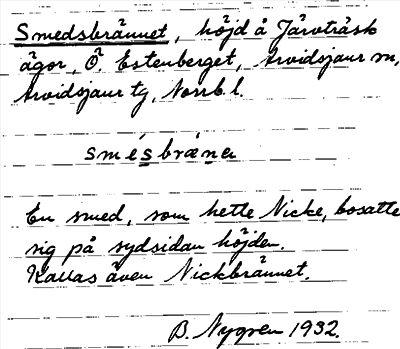 Smedsbrännet, höjd å Järvträsk
ägor, Ö. Estenberget, Arvidsjaur sn,
Arvidsjaur tg, Norrb. l.
smésbrä̀nɐ
En smed, som hette Nicke, bosatte
sig på sydsidan höjden.
Kallas även Nickbrännet.
B. Nygren 1932.